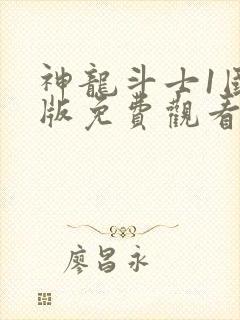 神龍斗士1國
版免費觀看
廖昌永